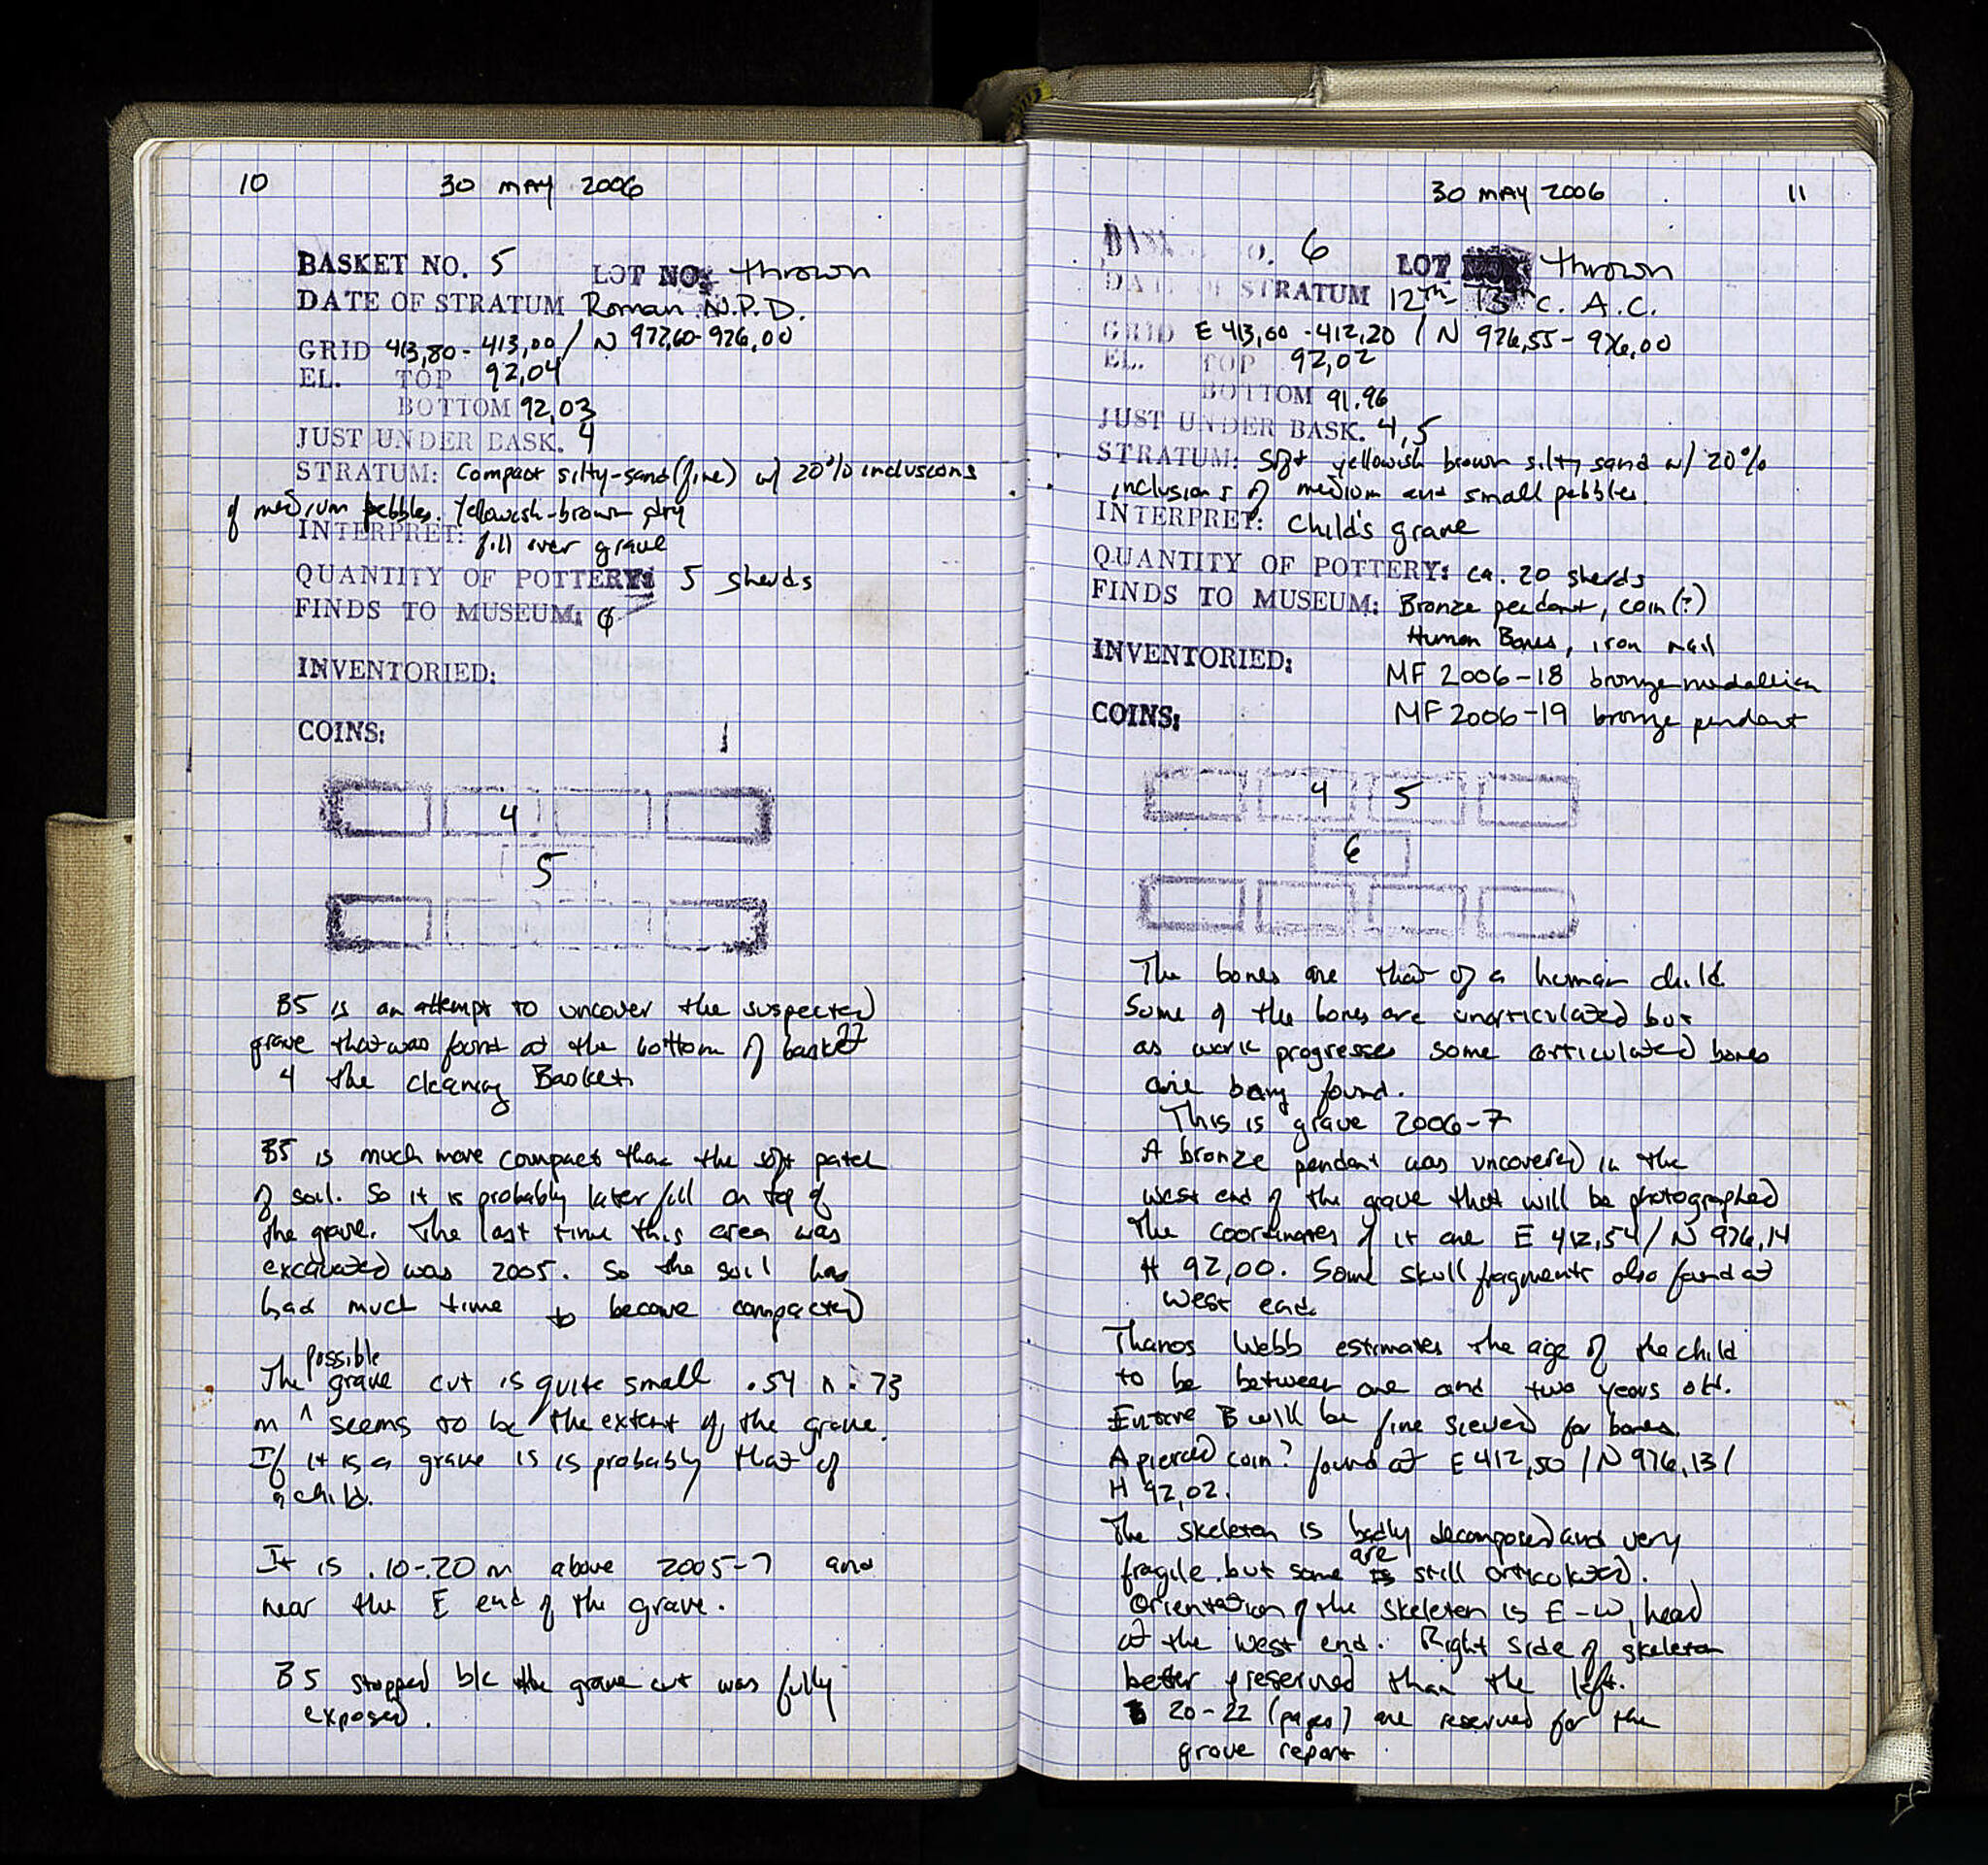 10 30 MAY 2006
BASKET NO. 5 LOT NO: thrown
DATE OF STRATUM Roman N.P.D.
GRID 413,80 - 413,00 / N 977,60-976,00
EL. TOP 92,04
BOTTOM 92,03
JUST UNDER BASK. 4
STRATUM: Compact silty-sand (fine) w/ 20% incluscions
of medium pebbles. Yellowish-brown dry
INTERPRET: fill over grave
QUANTITY OF POTTERY: 5 sherds
FINDS TO MUSEUM: φ
INVENTORIED:
COINS:
4
5
B5 is an attempt to uncover the suspected
grave that was found at the bottom of basket
4 the cleaning Basket
B5 is much more compact than the soft patch
of soil. So it is probably later fill on top of
the grave. The last time this area was
excavated was 2005. So the soil has
had much time to become compacted
possible
The grave cut is quite small .54 x .73
m seems to be the extent of the grave.
If it is a grave is is probably that of
a child.
It is .10-.20 m above 2005-7 and
near the E end of the grave.
B5 stopped b/c the grave cut was fully
exposed.
30 MAY 2006 11
BASKET NO. 6 LOT NO: thrown
DATE OF STRATUM 12th- 13th c. A.C.
GRID E 413,60 - 412,20 / N 976,55 - 976,00
EL. TOP 92,02
BOTTOM 91.96
JUST UNDER BASK. 4,5
STRATUM: Soft yellowish brown silty sand w/ 20%
inclusions of medium and small pebbles.
INTERPRET: Child's grave
QUANTITY OF POTTERY: ca. 20 sherds
FINDS TO MUSEUM: Bronze pendant, coin(?)
Human Bones, iron nail
INVENTORIED:
MF 2006-18 bronze medallion
COINS: MF 2006-19 bronze pendant
4 5
6
The bones are that of a human child
Some of the bones are unarticulated but
as work progresses some articulated bones
are being found.
This is grave 2006-7
A bronze pendant was uncovered in the
west end of the grave that will be photographed
The coordinates of it are E 412,54 / N 976,14
H 92,00. Some skull fragments also found at
west end.
Thanos Webb estimates the age of the child
to be between one and two years old.
Entire B will be fine sieved for bones.
A pierced coin? found at E 412,50 / N 976,13 /
H 92,02.
The skeleton is badly decomposed and very
fragile but some are still articulated.
Orientation of the skeleton is E-W, head
at the west end. Right side of skeleton
better preserved than the left.
20-22 (pages) are reserved for the
grave report